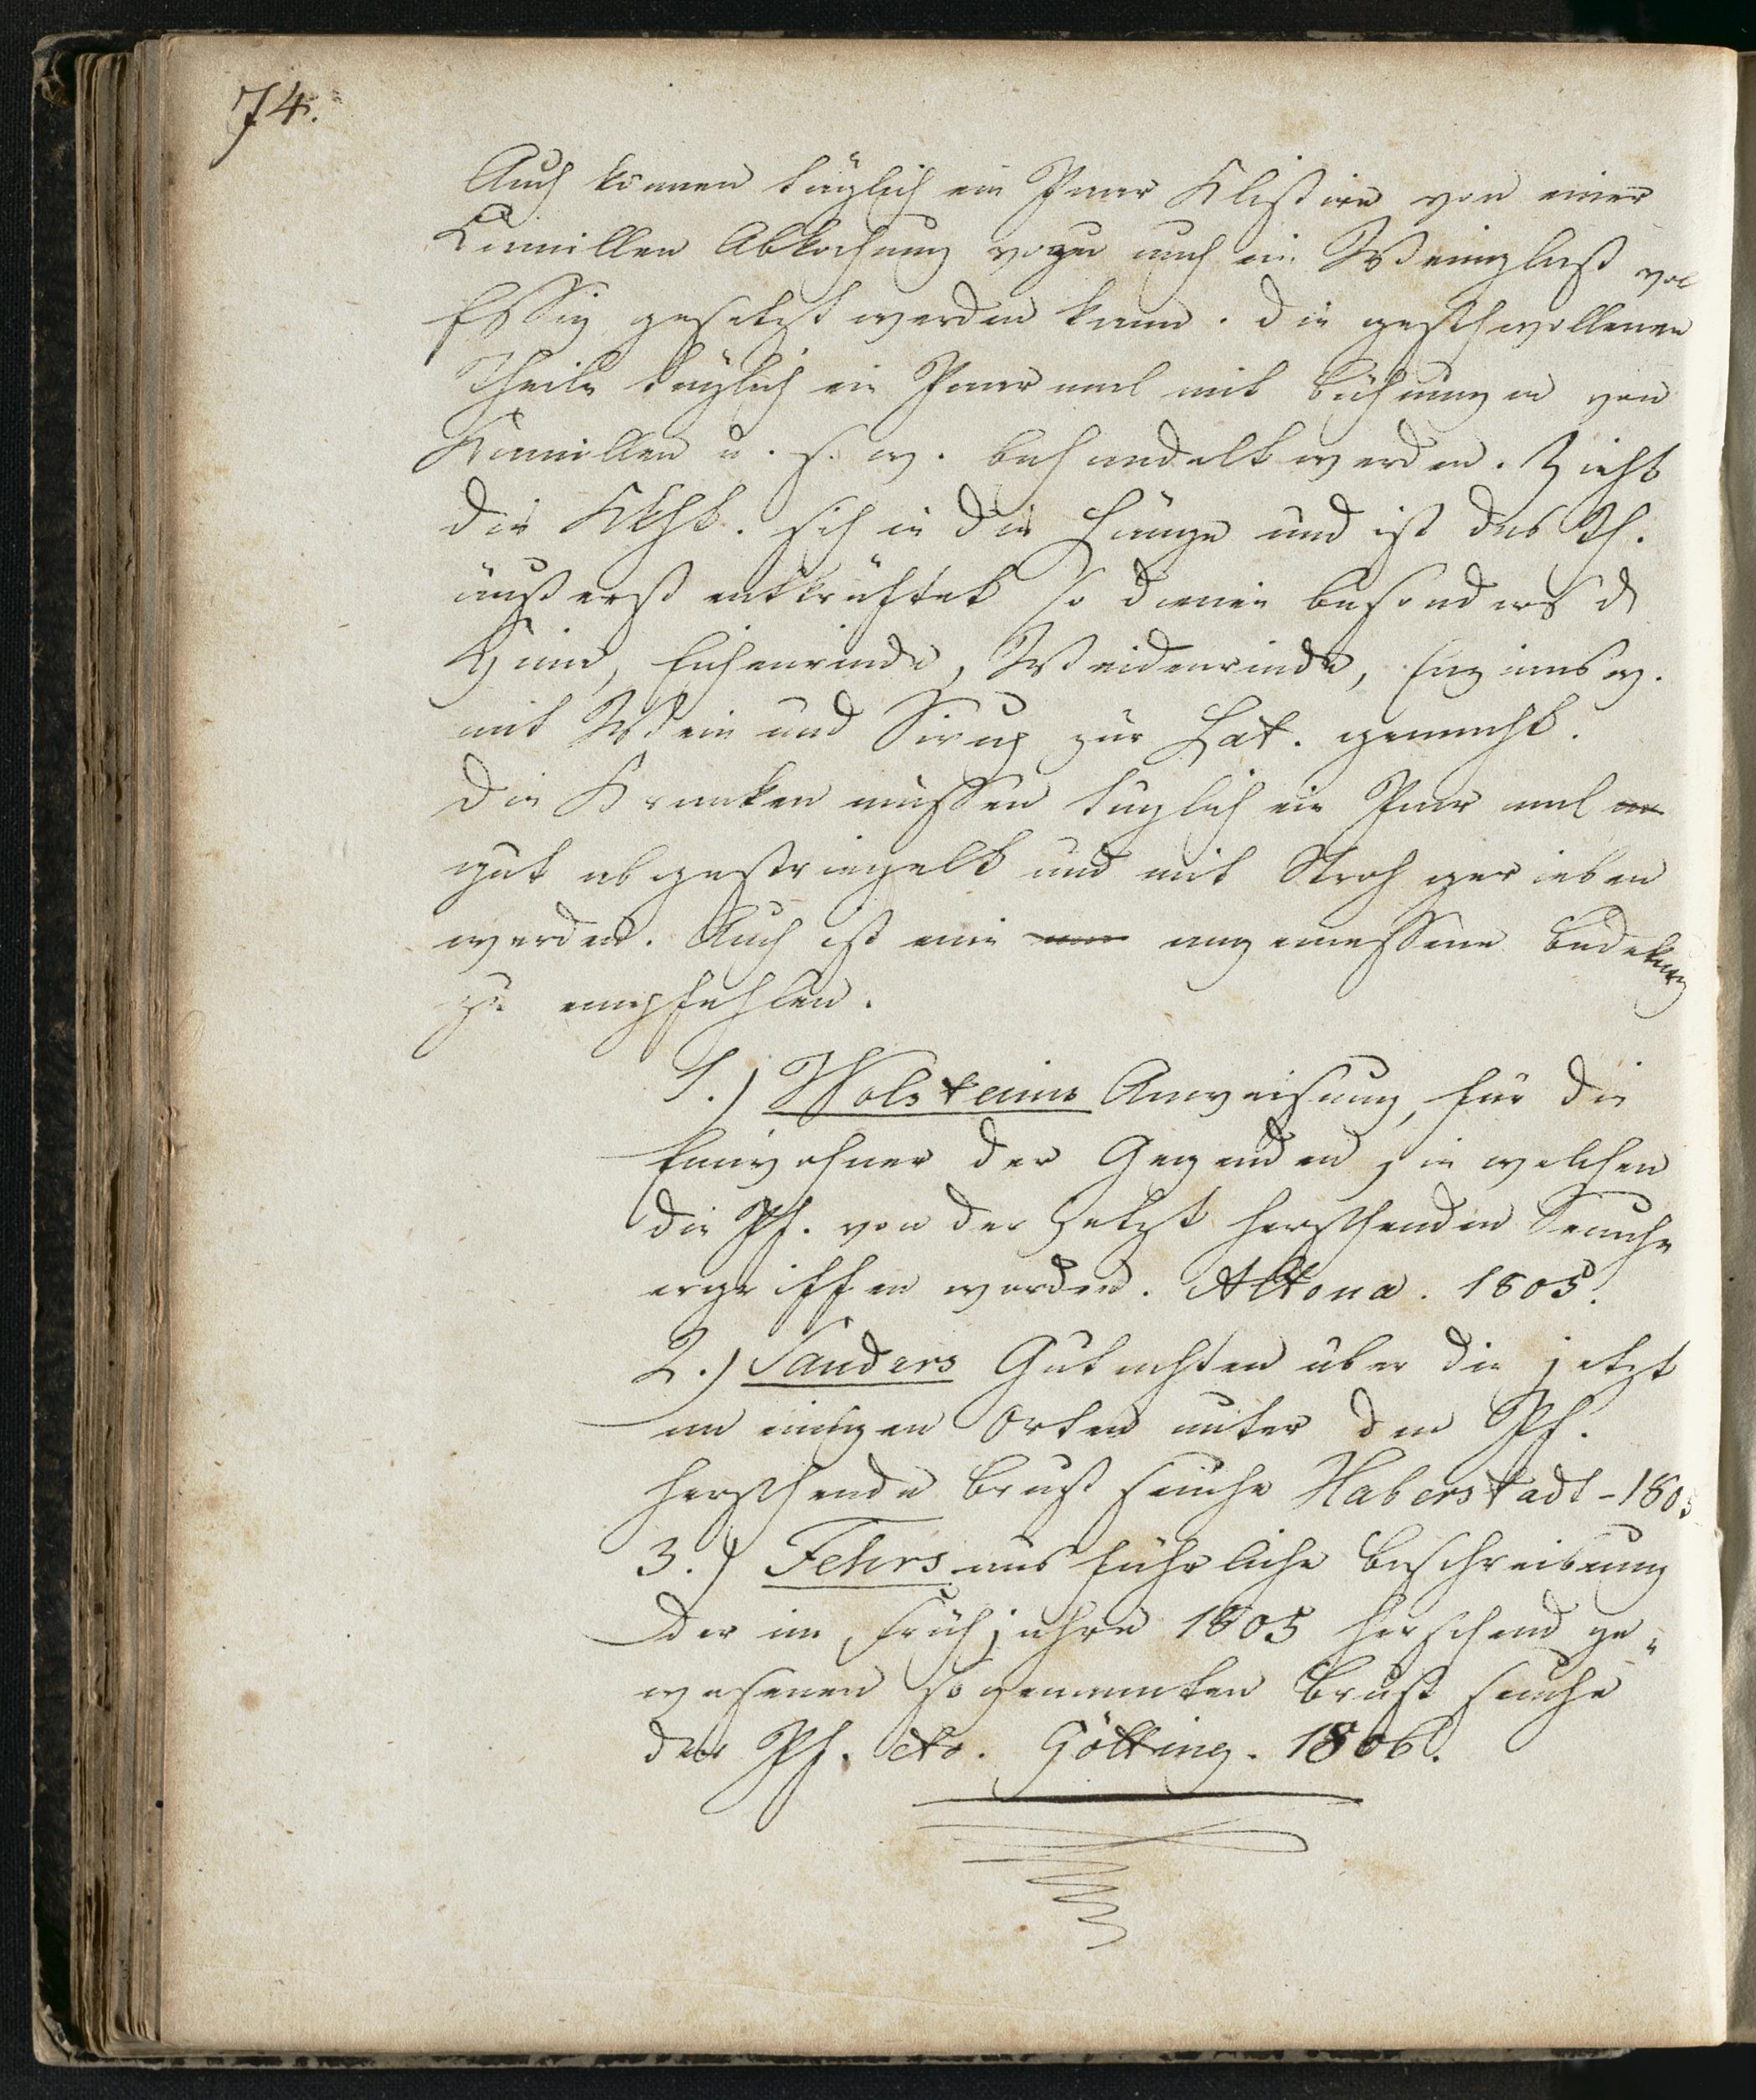 74.
Auch können täglich ein Paar Klistire von einer
Camillen Abkochung wozu auch ein Weinglaß vol
Essig gesetzt werden kann. die geschwollenen
Theile täglich ein Paar mal mit Bähungen von
Kamillen u. s. w. behandelt werden. Zieht
die Kkht. sich in die Länge und ist das Th.
äußerst entkräftet so dienen besonders d
China, Eichenrinde, Weidenrinde, Enzian
mit Wein und Sirup zur Lat. gemacht.
Die Kranken müssen täglich ein Paar mal
gut abgestriegelt und mit Stroh gerieben
werden. Auch ist eine angemessene Bedekung
zu empfehlen.
1.) Wolsteins Anweisung, für die
Einwohner der Gegenden, in welchen
die Pf. von der Jetzt herschenden Seuche
ergriffen worden. Altona. 1805.
2.) Sanders Gutachten über die jetzt
an einigen Orten unter den Pf.
herschende Brust seuche Haberstadt - 1805
3.) Fehrs aus führliche Beschreibung
der im Frühjahre 1805 herschend ge„
wesenen sogenannten Brust seuche
der Pf. etc. Götting. 1806.